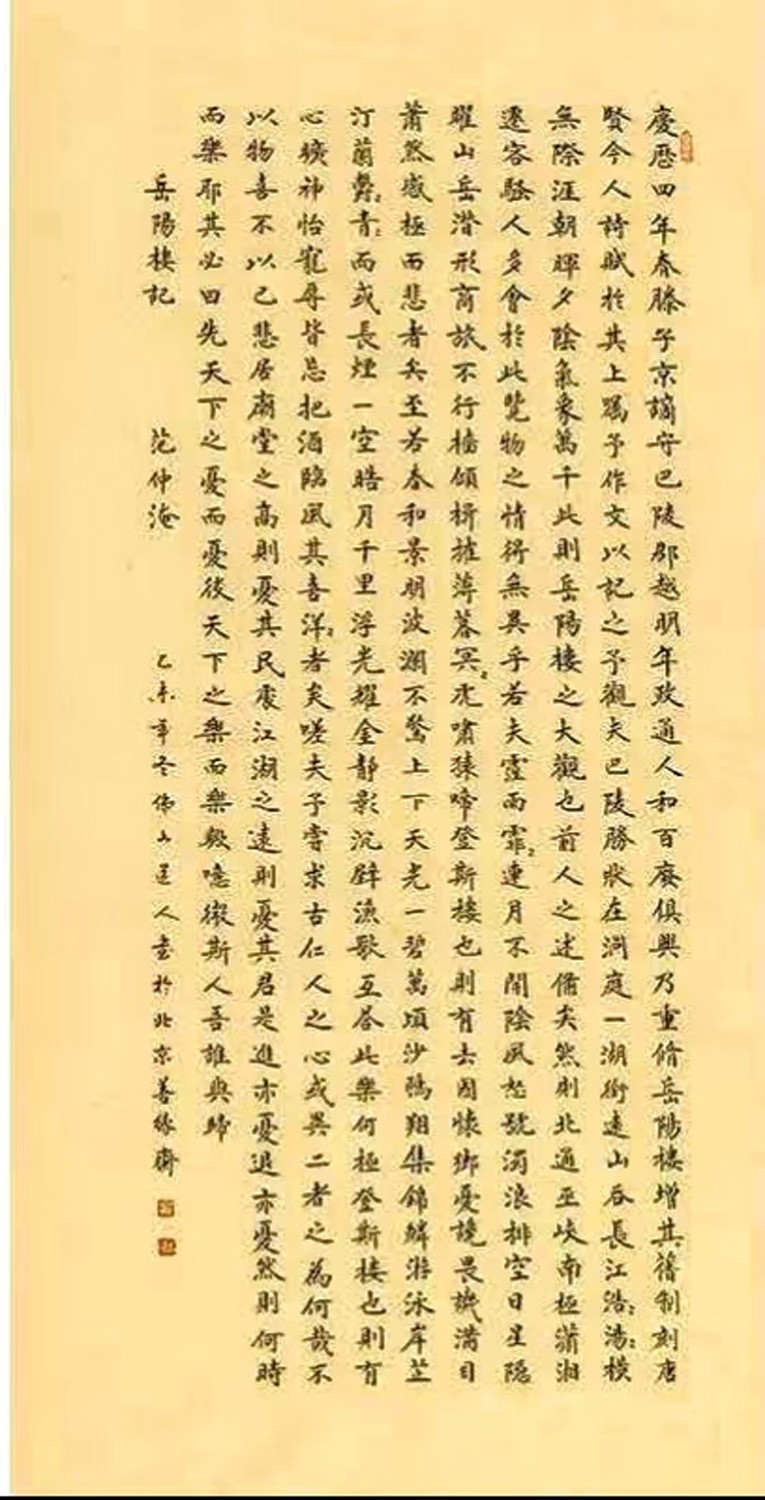 慶歷四年春滕子京謫守巴陵郡越明年政通人和百廢俱興乃重脩岳陽樓增其舊制刻唐
賢今人詩賦於其上屬予作文以記之予觀夫巴陵勝狀在洞庭一湖銜遠山吞長江浩〻湯〻橫
無際涯朝暉夕陰氣象萬千此則岳陽樓之大觀也前人之述備矣然則北通巫峽南極瀟湘
遷客騷人多會於此覽物之情得無異乎若夫霪雨霏〻連月不開陰風怒號濁浪排空日星隱
耀山岳潛形商旅不行檣傾楫摧薄暮冥〻虎嘯猿啼登斯樓也則有去國懷鄉憂讒畏譏滿目
蕭然感極而悲者矣至若春和景明波瀾不驚上下天光一碧萬頃沙鷗翔集錦鱗游泳岸芷
汀蘭鬱〻青〻而或長煙一空皓月千里浮光耀金靜影沉璧漁歌互答此樂何極登斯樓也則有
心曠神怡寵辱皆忘把酒臨風其喜洋〻者矣嗟夫予嘗求古仁人之心或異二者之為何哉不
以物喜不以己悲居廟堂之高則憂其民處江湖之遠則憂其君是進亦憂退亦憂然則何時
而樂耶其必曰先天下之憂而憂後天下之樂而樂歟噫微斯人吾誰與歸
岳陽樓記 范仲淹 乙未年冬佛山道人書於北京善緣齋